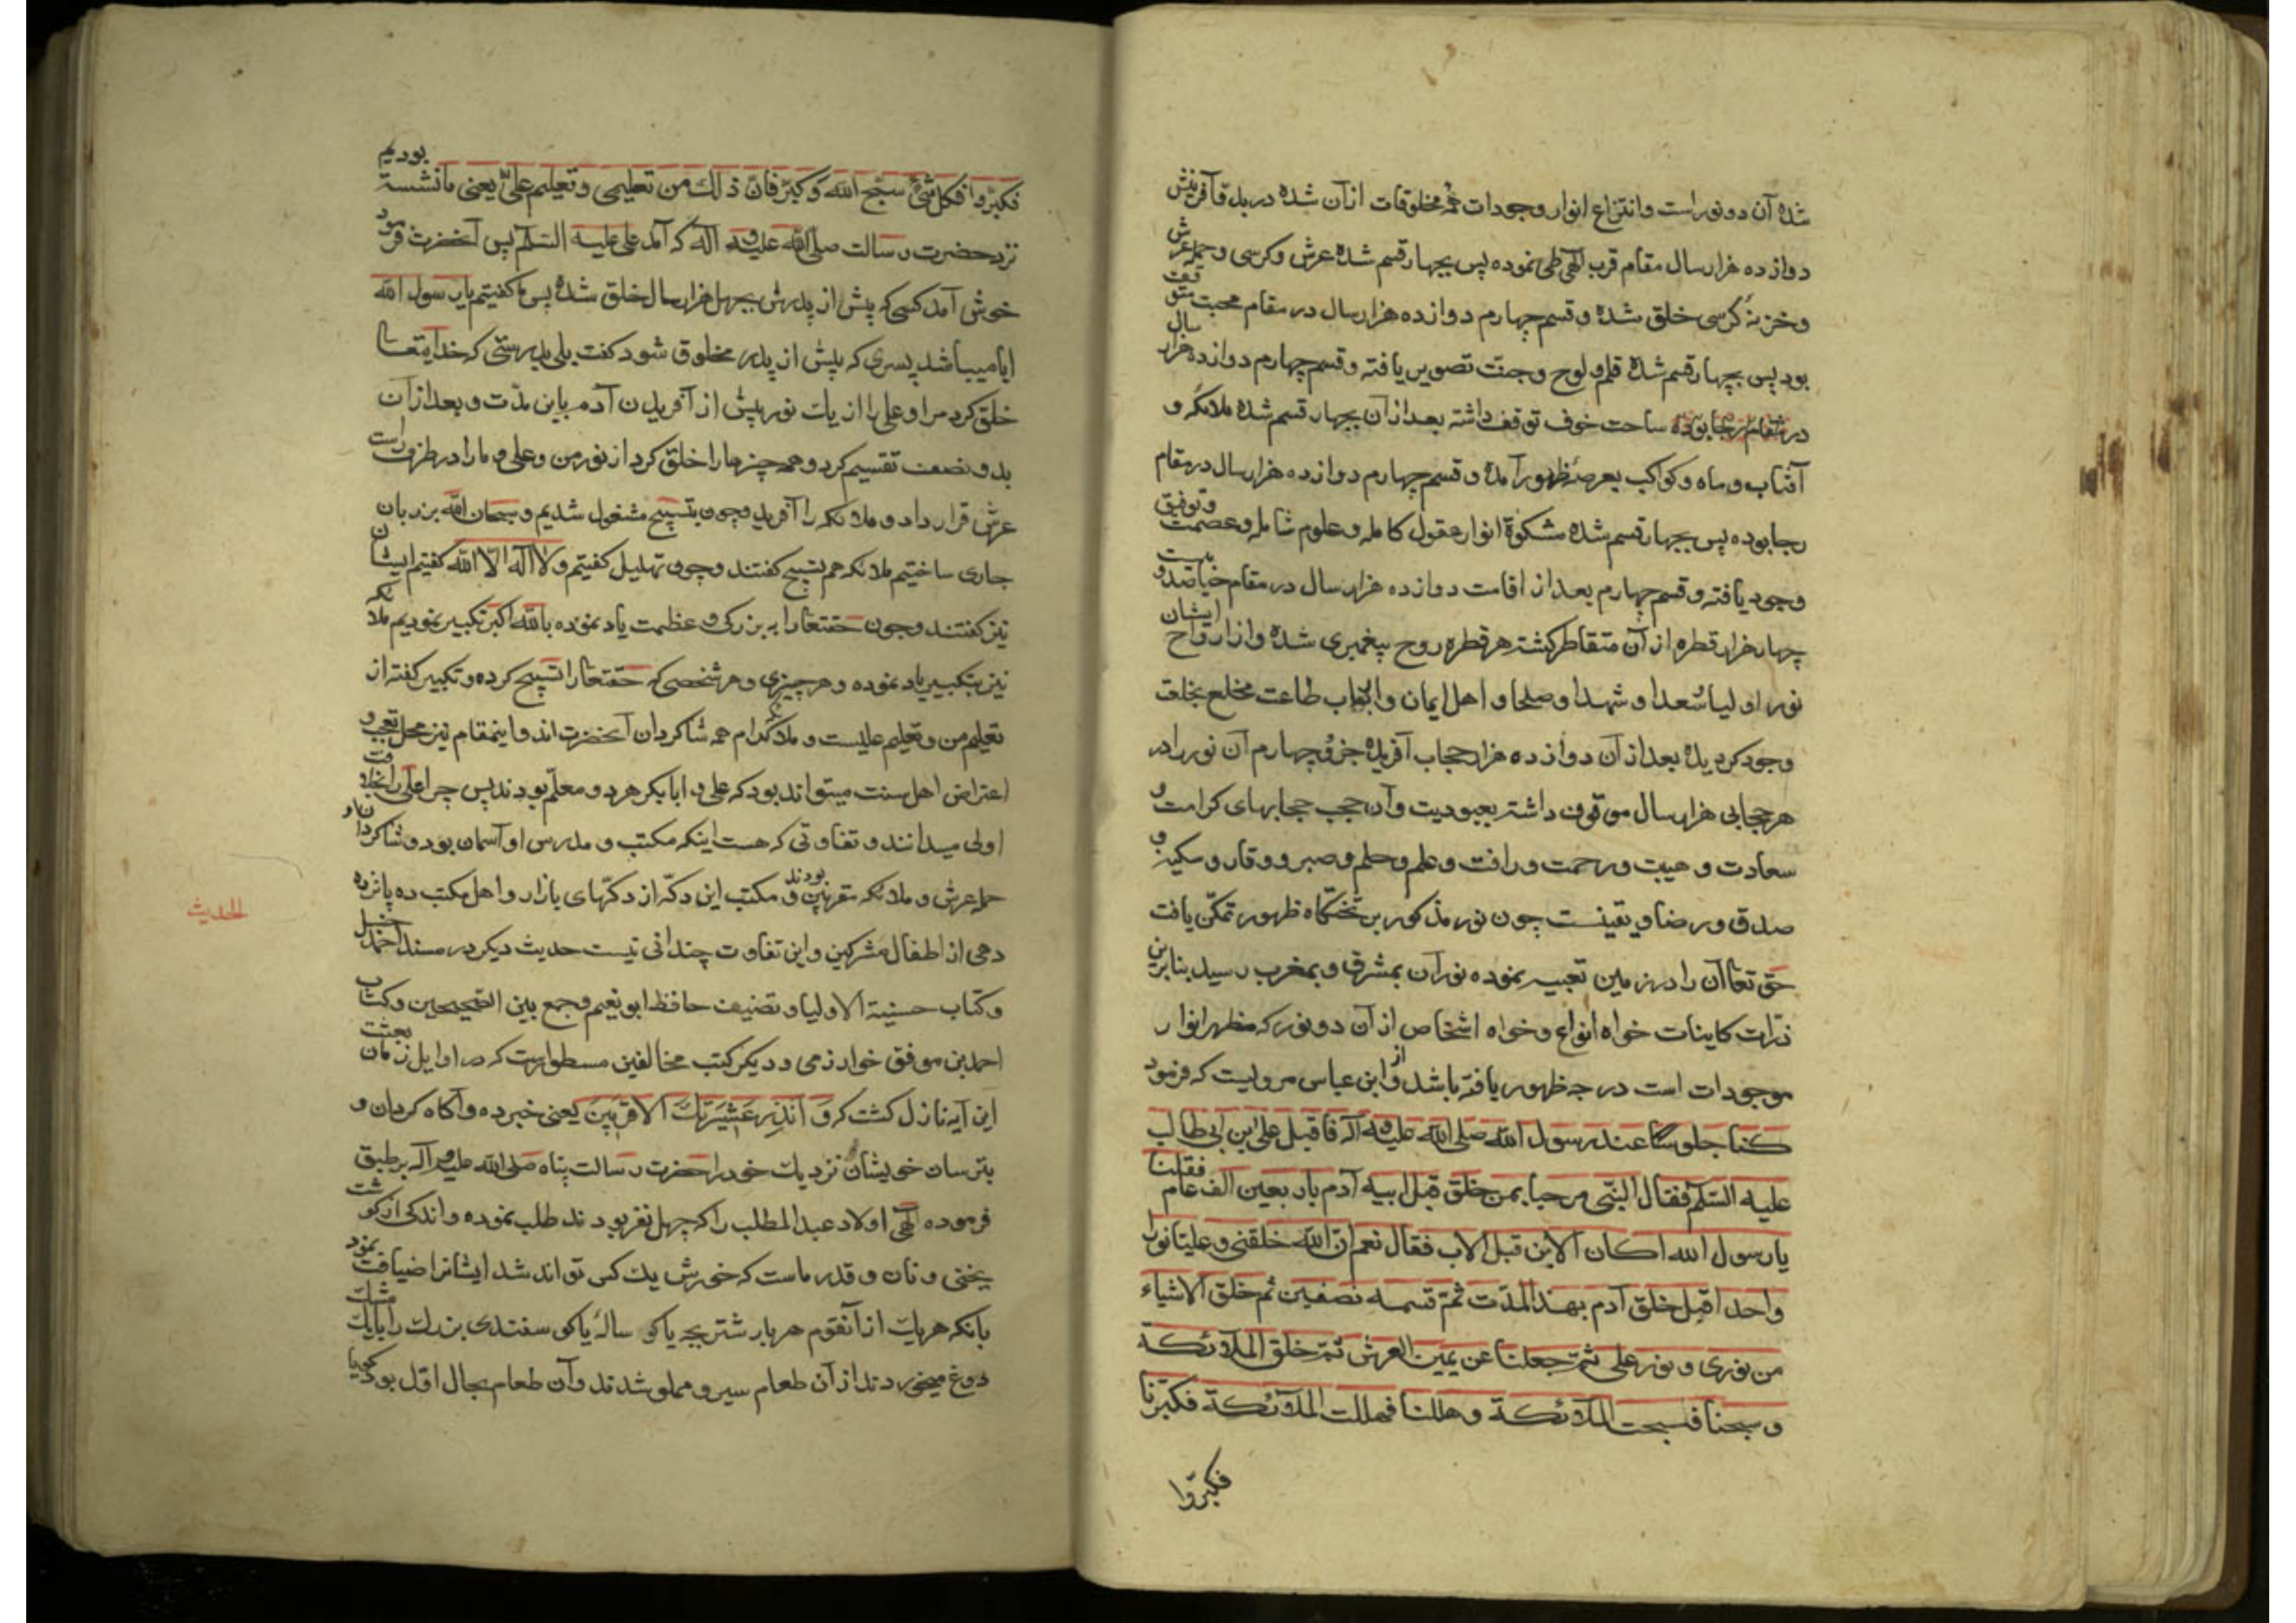 شده آن دو نور است و انتزاع انوار وجودات همه مخلوقات ازآن شده در بدو آفرینش
دوازده هزار سال مقام قرب الهی طی نموده پس بچهار قسم شده عرش و کرسی و حمله عرش
و خزنهٔ کرسی خلق شده و قسم چهارم دوازده هزار سال در مقام محبت متوقف
بود پس بچهار قسم شده قلم و لوح و جنت تصویر یافته و قسم چهارم دوازده هزار سال
در ساحت خوف توقف داشته بعد از آن بچهار قسم شده ملائکه و
آفتاب و ماه و کواکب بعرصهٔ ظهور آمده و قسم چهارم دوازده هزار سال در مقام
رجا بوده پس بچهار قسم شده مشکوة انوار عقول کامله و علوم شامله و عصمت و توفیق
وجود یافته و قسم چهارم بعد از اقامت دوازده هزار سال در مقام حیا صد و بیست
چهار هزار قطره از آن متقاطر کشته هر قطره روح پیغمبری شده و از ارواح ایشان
نور اولیا و سعدا و شهدا و صلحا و اهل ایمان و ارباب طاعت مخلع بخلعت
وجود کردیده بعد از آن دوازده هزار حجاب آفریده جزو چهارم آن نور را در
هر حجابی هزار سال موقوف داشته بعبودیت و آن حجب حجابهای کرامت و
سعادت و هیبت و رحمت و رافت و علم و حلم و صبر و وقار و سکینه و
صدق و رضا و یقینست چون نور مذکور بر تختکاه ظهور تمکّن یافت
حق تعا آن را در زمین تعبیه نموده نور آن بمشرق و بمغرب رسید بنابرین
ذرّات کاینات خواه انواع و خواه اشخاص از آن دو نور که مظهر انوار
موجودات است درجه ظهور یافته باشد و از ابن عباس مرویست که فرمود
کنا جلوسًا عند رسول الله صلی الله علیه و آله فاقبل علی ابن ابی طالب
علیه السلم فقال النبی مرحبا بمن خلق قبل ابیه آدم باربعین الف عام فقلنا
یا رسول الله اکان الابن قبل الاب فقال نعم ان الله خلقنی و علیّا نورا
واحدا قبل خلق آدم بهذ المدّت ثمّ قسمه نصفین ثم خلق الاشیاء
من نوری و نور علی ثمّ جعلنا عن یمین العرش ثمّ خلق الملآئکة
و سبحنا فسبحت الملآئکة و هللنا فهللت الملآئکة فکبّرنا
فکبّروا
فکبّروا فکل شئ سبّح الله و کبّر فانّ ذالک من تعلیمی و تعلیم علیّ یعنی ما نشسته بودیم
نزد حضرت رسالت صلی الله علیه و آله که آمد علی علیه السلم پس آنحضرت فرمود
خوش آمد کسی که پیش از پدرش بچهل هزار سال خلق شده پس ما کفتیم یا رسول الله
ایا میباشد پسری که پیش از پدر مخلوق شود کفت بلی بدرستی که خدایتعا
خلق کرد مرا و علی را از یک نور پیش از آفریدن آدم باین مدّت و بعد از آن
بدو نصف تقسیم کرد و همه چیزها را خلق کرد از نور من و علی و ما را در طرف راست
عرش قرار داد و ملائکه را آفرید و چون بتسبیح مشغول شدیم و سبحان الله بر زبان
جاری ساختیم ملائکه هم تسبیح کفتند و چون تهلیل کفتیم و لا اله الّا الله کفتیم ایشان
نیز کفتند و چون حقتعا را به بزرکی و عظمت یاد نموده با الله اکبر تکبیر نمودیم ملائکه
نیز بتکبیر یاد نموده و هر چیزی و هر شخصی که حقتعا را تسبیح کرده و تکبیر کفته از
تعلیم من و تعلیم علیست و ملائکه کرام همه شاکردان آنحضرت اند و اینمقام نیز محل تعجب و
اعتراض اهل سنت میتواند بود که علی و ابابکر هر دو معلّم بودند پس چرا علی را بخلافت
اولی میدانند و تفاوتی که هست اینکه مکتب و مدرس او آسمان بود و شاکردان او
حمله عرش و ملائکه مقربین بودند و مکتب این دکّه از دکّهای بازار و اهل مکتب ده پانزده
دهی از اطفال مشرکین و این تفاوت چندانی نیست حدیث دیکر در مسند احمد حنبل
الحدیث
و کتاب حسنیة الاولیاء تصنیف حافظ ابو نعیم و جمع بین الصّحیحین و کتاب
احمد بن موفق خوارزمی و دیکر کتب مخالفین مسطور است که در اوایل زمان بعثت
این آیه نازل کشت که وَ اَنْذِرْ عَشیرَتَكَ الاقربینَ یعنی خبر ده و آکاه کردان و
بترسان خویشان نزدیک خود را حضرت رسالت پناه صلی الله علیه و آله بر طبق
فرموده الهی اولاد عبد المطلب را که چهل نفر بودند طلب نموده و اندکی از کوشت
یخنی و نان و قدر ماست که خورش یک کس تواند شد ایشانرا ضیافت نمود
بانکه هر یک از آنقوم هر بار شتر بچه یا کو ساله یا کوسفندی بزرک را با یک مشک
دوغ میخوردند از آن طعام سیر و مملو شدند و آن طعام بحال اوّل بود کویا